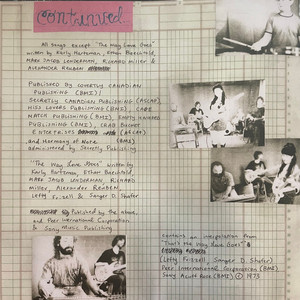 continued
All Songs Except The Way Love Goes
written by Karly Hartzman, Ethan Baechtold,
MARK JACOB LENDERMAN, RICHARD MILLER &
ALEXANDER REUBEN
PUBLISHED BY COVERTLY CANADIAN
PUBLISHING (BMI) /
SECRETLY CANADIAN PUBLISHING (ASCAP),
MISS LOVERS PUBLISHING (BMI), CAPE
WATCH PUBLISHING (BMI), EMPTY
PUBLISHING (BMI),
(ASCAP)
and Harmony of None (BMI)
Administered by Secretly Publishing
"The Way Love Goes" written by
Karly Hartzman, Ethan Baechtold,
MARK JACOB LENDERMAN, RICHARD
MILLER, Alexander REUBEN,
Lefty Frizzell & Sanger D. Shafer
Published by the above,
and Peer International Corporation
& SONY MUSIC Publishing
contains an interpolation from
"That's the Way Love Goes"
(Lefty Frizzell, Sanger D. Shafer)
Peer International Corporation (BMI)
Sony Acuff Rose (BMI) © 1973